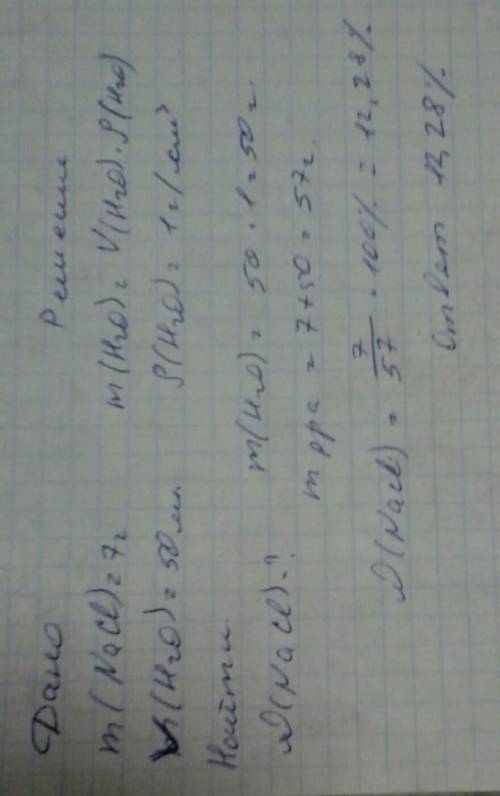 Дано
m(NaCl)=7г
V(H2O)=50мл.
Найти
ω(NaCl)-?
Решение
m(H2O)= V(H2O)·ρ(H2O)
ρ(H2O)= 1г/см³
m(H2O)= 50·1=50г.
m рра = 7+50 = 57г.
ω(NaCl) = 7/57 · 100% = 12,28%
Ответ 12,28%